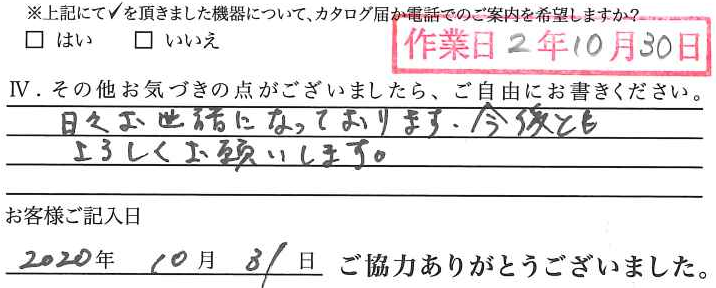 ※上記にて✓を頂きました機器について、カタログ届か電話でのご案内を希望しますか?
□ はい □ いいえ
作業日 2年10月30日
Ⅳ．その他お気づきの点がございましたら、ご自由にお書きください。
日々お世話になっております。今後とも
よろしくお願いします。
お客様ご記入日
2020年 10月 31日 ご協力ありがとうございました。